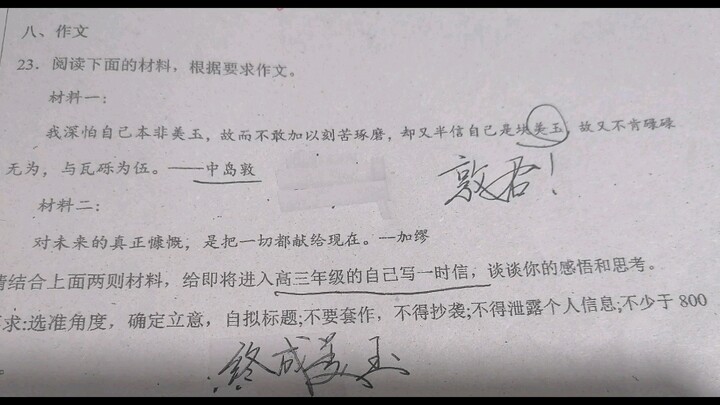 八、作文
23. 阅读下面的材料，根据要求作文。
材料一：
我深怕自己本非美玉，故而不敢加以刻苦琢磨，却又半信自己是块美玉，故又不肯碌碌
无为，与瓦砾为伍。——中岛敦
敦君！
材料二：
对未来的真正慷慨，是把一切都献给现在。--加缪
请结合上面两则材料，给即将进入高三年级的自己写一时信，谈谈你的感悟和思考。
求:选准角度，确定立意，自拟标题;不要套作，不得抄袭;不得泄露个人信息;不少于 800
。
终成美玉